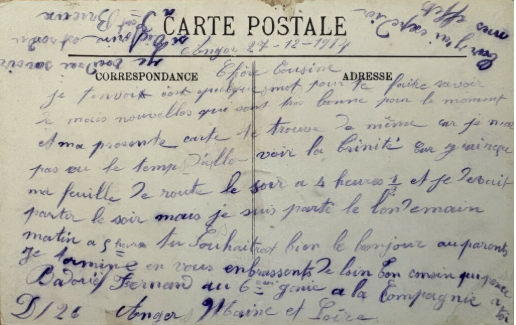 CARTE POSTALE
Anger 27-12-1917
CORRESPONDANCE
ADRESSE
Chère Cousine
je t'envoit c'est quelques mot pour te faite savoir
mais nouvelles qui sont très bonne pour le moment
et ma presente carte te trouve de même car je nez
pas ou le temp d'allor voir la Trinité car j'ai reçue
ma feuille de route le soir a 4 heures 1/2 et je devait
partir le soir mais je suis partie le londemain
matin a 5 heures tu Souhaiteras bien le bonjour au parents
Je termine en vous enbrassents de loin ton cousin qui pense
a toi
Badorief Fernand au 6 eme génie a la Compagnie
D/26 Anger Maine et Loire